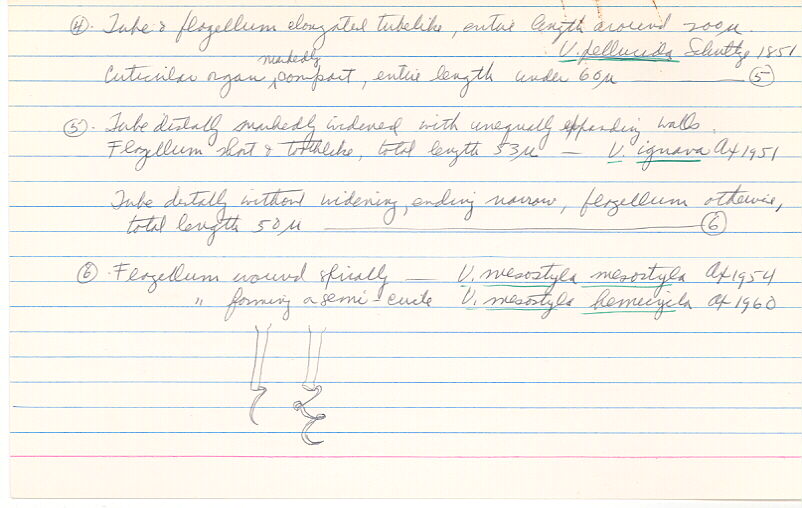 ④. Tube & flagellum elongated tubelike, entire length around 200µ.
V. pellucida Schultze 1851
markedly
Cuticular organ compact, entire length under 60µ ———— ⑤
⑤. Tube distally markedly widened with unequally expanding walls.
Flagellum short & toothlike, total length 53µ — V. ignava Ax 1951
Tube distally without widening, ending narrow, flagellum otherwise,
total length 50µ ———— ⑥
⑥. Flagellum wound spirally — V. mesostyla mesostyla Ax 1954
" forming a semi-circle V. mesostyla hemicycla Ax 1960